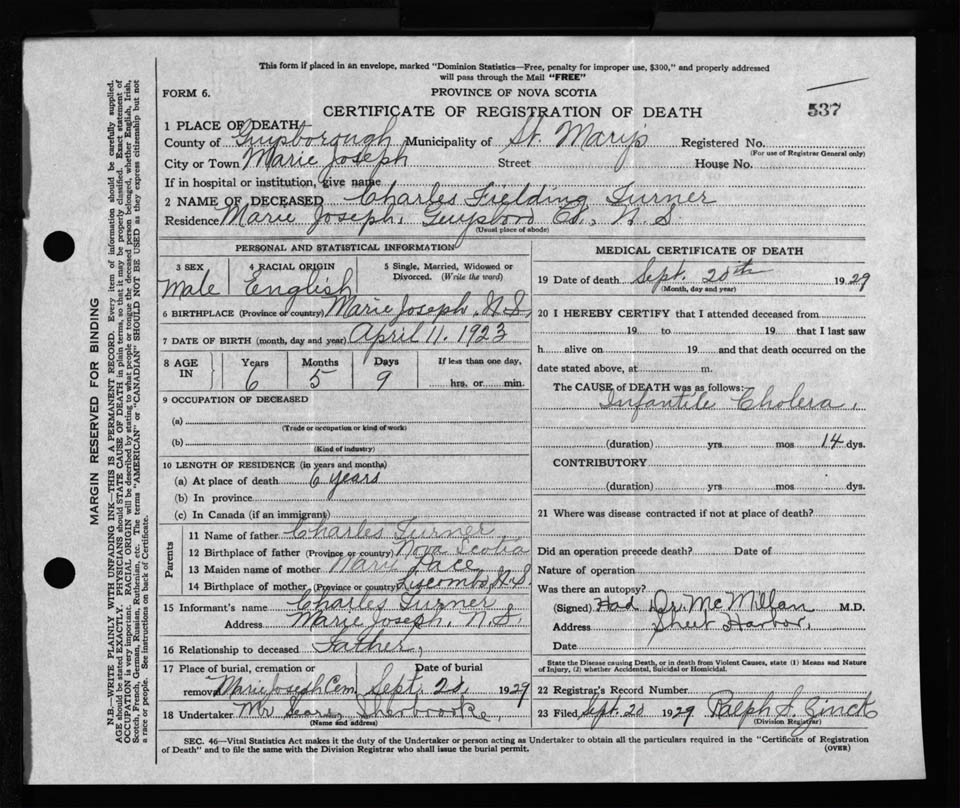 This form if placed in an envelope, marked "Dominion Statistics—Free, penalty for improper use, $300," and properly addressed
will pass through the Mail "FREE"
FORM 6.
PROVINCE OF NOVA SCOTIA
CERTIFICATE OF REGISTRATION OF DEATH
537
1 PLACE OF DEATH
County of Guysborough Municipality of St. Marys Registered No.
(For use of Registrar General only)
City or Town Marie Joseph Street House No.
If in hospital or institution, give name
2 NAME OF DECEASED Charles Fielding Turner
Residence Marie Joseph, Guysboro Co., N.S
(Usual place of abode)
PERSONAL AND STATISTICAL INFORMATION
3 SEX 4 RACIAL ORIGIN 5 Single, Married, Widowed or
Divorced. (Write the word)
Male English
6 BIRTHPLACE (Province or country) Marie Joseph, N.S,
7 DATE OF BIRTH (month, day and year) April 11, 1923
8 AGE IN Years Months Days If less than one day,
6 5 9 hrs. or min.
9 OCCUPATION OF DECEASED
(a)
(Trade or occupation or kind of work)
(b)
(Kind of industry)
10 LENGTH OF RESIDENCE (in years and months)
(a) At place of death 6 years
(b) In province
(c) In Canada (if an immigrant)
Parents
11 Name of father Charles Turner
12 Birthplace of father (Province or country) Nova Scotia
13 Maiden name of mother Pace
14 Birthplace of mother (Province or country) Liscomb, N.S.
15 Informant's name Charles Turner
Address Marie Joseph, N.S.
16 Relationship to deceased Father,
17 Place of burial, cremation or Date of burial
removal Marie Joseph Cem Sept. 1929
18 Undertaker Mr Sherbrooke,
(Name and address)
MEDICAL CERTIFICATE OF DEATH
19 Date of death Sept. 20th 1929
(Month, day and year)
20 I HEREBY CERTIFY that I attended deceased from
19 to 19 that I last saw
h alive on 19 and that death occurred on the
date stated above, at m.
The CAUSE of DEATH was as follows:
Infantile Cholera,
(duration) yrs. mos 14 dys.
CONTRIBUTORY
(duration) yrs. mos. dys.
21 Where was disease contracted if not at place of death?
Did an operation precede death? Date of
Nature of operation
Was there an autopsy?
(Signed) Had Dr. McMillan M.D.
Address Sheet Harbor,
Date
State the Disease causing Death, or in death from Violent Causes, state (1) Means and Nature
of Injury, (2) whether Accidental, Suicidal or Homicidal.
22 Registrar's Record Number
23 Filed Sept. 20 1929 Ralph S. Zinck
(Division Registrar)
SEC. 46—Vital Statistics Act makes it the duty of the Undertaker or person acting as Undertaker to obtain all the particulars required in the "Certificate of Registration
of Death" and to file the same with the Division Registrar who shall issue the burial permit.
(OVER)
MARGIN RESERVED FOR BINDING
N.B.—WRITE PLAINLY WITH UNFADING INK—THIS IS A PERMANENT RECORD. Every item of information should be carefully supplied.
AGE should be stated EXACTLY. PHYSICIANS should STATE CAUSE OF DEATH in plain terms, so that it may be properly classified. Exact statement of
OCCUPATION is very important. RACIAL ORIGIN will be described by stating to what people or tongue the deceased person belonged, whether English, Irish,
Scotch, French, German, Russian, Ruthenian, etc. The terms "AMERICAN" or "CANADIAN" SHOULD NOT BE USED as they express citizenship but not
a race or people. See instructions on back of Certificate.